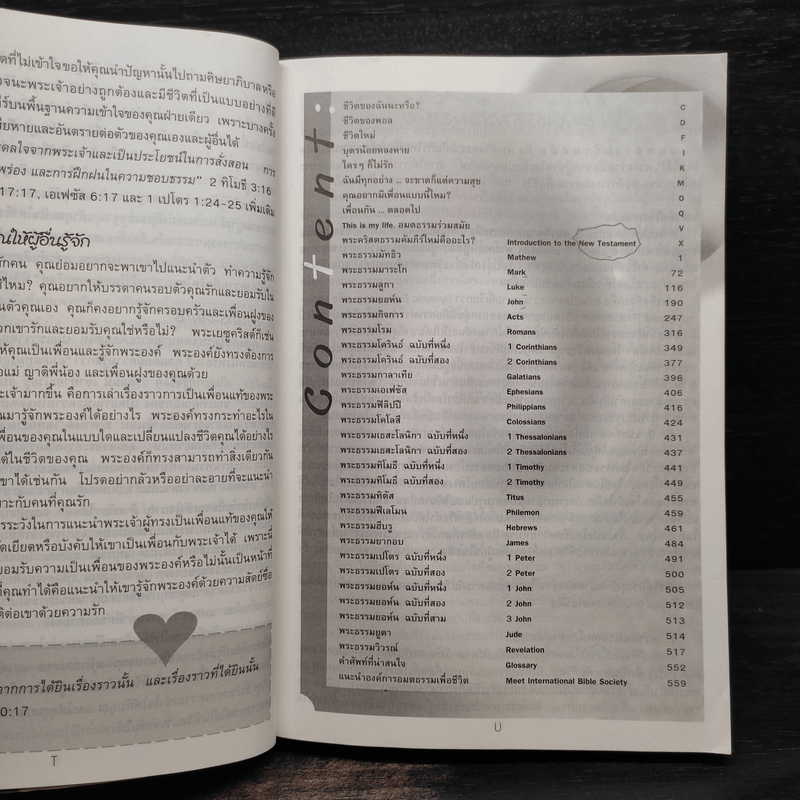 ดที่ไม่เข้าใจขอให้คุณนำปัญหานั้นไปถามศิษยาภิบาลหรือ
จนะพระเจ้าอย่างถูกต้องและมีชีวิตที่เป็นแบบอย่างที่ดี
ร์บนพื้นฐานความเข้าใจของคุณฝ่ายเดียว เพราะบางครั้ง
สียหายและอันตรายต่อตัวของคุณเองและผู้อื่นได้
ดลใจจากพระเจ้าและเป็นประโยชน์ในการสั่งสอน การ
พร่อง และการฝึกฝนในความชอบธรรม" 2 ทิโมธี 3:16
17:17, เอเฟซัส 6:17 และ 1 เปโตร 1:24-25 เพิ่มเติม
ให้ผู้อื่นรู้จัก
รักคน คุณย่อมอยากจะพาเขาไปแนะนำตัว ทำความรู้จัก
ไหม? คุณอยากให้บรรดาคนรอบตัวคุณรักและยอมรับใน
นตัวคุณเอง คุณก็คงอยากรู้จักครอบครัวและเพื่อนฝูงของ
วกเขารักและยอมรับคุณใช่หรือไม่? พระเยซูคริสต์ก็เช่น
ห้คุณเป็นเพื่อนและรู้จักพระองค์ พระองค์ยังทรงต้องการ
อแม่ ญาติพี่น้อง และเพื่อนฝูงของคุณด้วย
ะเจ้ามากขึ้น คือการเล่าเรื่องราวการเป็นเพื่อนแท้ของพระ
ณมารู้จักพระองค์ได้อย่างไร พระองค์ทรงกระทำอะไรใน
พื่อนของคุณในแบบใดและเปลี่ยนแปลงชีวิตคุณได้อย่างไร
ได้ในชีวิตของคุณ พระองค์ก็ทรงสามารถทำสิ่งเดียวกัน
ขาได้เช่นกัน โปรดอย่ากลัวหรืออย่าละอายที่จะแนะนำ
มาะกับคนที่คุณรัก
รระวังในการแนะนำพระเจ้าผู้ทรงเป็นเพื่อนแท้ของคุณให้
ัดเยียดหรือบังคับให้เขาเป็นเพื่อนกับพระเจ้าได้ เพราะนี่
ยอมรับความเป็นเพื่อนของพระองค์หรือไม่นั้นเป็นหน้าที่
ที่คุณทำได้คือแนะนำให้เขารู้จักพระองค์ด้วยความสัตย์ซื่อ
ติต่อเขาด้วยความรัก
จากการได้ยินเรื่องราวนั้น และเรื่องราวที่ได้ยินนั้น
0:17
T
Content
ชีวิตของฉันนะหรือ? C
ชีวิตของพอล D
ชีวิตใหม่ F
บุตรน้อยหลงหาย I
ใครๆ ก็ไม่รัก K
ฉันมีทุกอย่าง ... จะขาดก็แต่ความสุข M
คุณอยากมีเพื่อนแบบนี้ไหม? O
เพื่อนกัน ... ตลอดไป Q
This is my life. อมตธรรมร่วมสมัย V
พระคริสตธรรมคัมภีร์ใหม่คืออะไร? Introduction to the New Testament X
พระธรรมมัทธิว Mathew 1
พระธรรมมาระโก Mark 72
พระธรรมลูกา Luke 116
พระธรรมยอห์น John 190
พระธรรมกิจการ Acts 247
พระธรรมโรม Romans 316
พระธรรมโครินธ์ ฉบับที่หนึ่ง 1 Corinthians 349
พระธรรมโครินธ์ ฉบับที่สอง 2 Corinthians 377
พระธรรมกาลาเทีย Galatians 396
พระธรรมเอเฟซัส Ephesians 406
พระธรรมฟีลิปปี Philippians 416
พระธรรมโคโลสี Colossians 424
พระธรรมเธสะโลนิกา ฉบับที่หนึ่ง 1 Thessalonians 431
พระธรรมเธสะโลนิกา ฉบับที่สอง 2 Thessalonians 437
พระธรรมทิโมธี ฉบับที่หนึ่ง 1 Timothy 441
พระธรรมทิโมธี ฉบับที่สอง 2 Timothy 449
พระธรรมทิตัส Titus 455
พระธรรมฟีเลโมน Philemon 459
พระธรรมฮีบรู Hebrews 461
พระธรรมยากอบ James 484
พระธรรมเปโตร ฉบับที่หนึ่ง 1 Peter 491
พระธรรมเปโตร ฉบับที่สอง 2 Peter 500
พระธรรมยอห์น ฉบับที่หนึ่ง 1 John 505
พระธรรมยอห์น ฉบับที่สอง 2 John 512
พระธรรมยอห์น ฉบับที่สาม 3 John 513
พระธรรมยูดา Jude 514
พระธรรมวิวรณ์ Revelation 517
คำศัพท์ที่น่าสนใจ Glossary 552
แนะนำองค์การอมตธรรมเพื่อชีวิต Meet International Bible Society 559
U